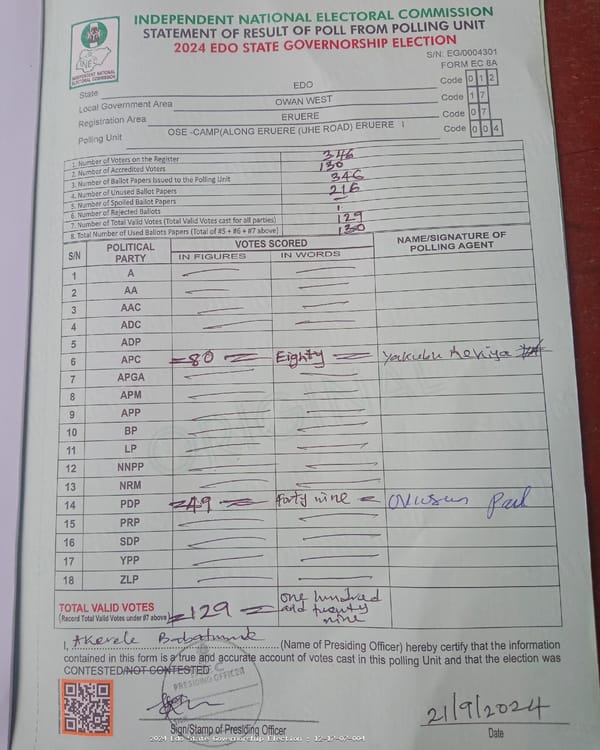 INDEPENDENT NATIONAL ELECTORAL COMMISSION
STATEMENT OF RESULT OF POLL FROM POLLING UNIT
2024 EDO STATE GOVERNORSHIP ELECTION
INDEPENDENT NATIONAL ELECTORAL COMMISSION
S/N: EG/0004301
FORM EC 8A
State EDO Code 0 1 2
Local Government Area OWAN WEST Code 1 7
Registration Area ERUERE Code 0 7
Polling Unit OSE -CAMP(ALONG ERUERE (UHE ROAD) ERUERE I Code 0 0 4
1. Number of Voters on the Register 346
2. Number of Accredited Voters 130
3. Number of Ballot Papers Issued to the Polling Unit 346
4. Number of Unused Ballot Papers 216
5. Number of Spoiled Ballot Papers —
6. Number of Rejected Ballots 1
7. Number of Total Valid Votes (Total Valid Votes cast for all parties) 129
8. Total Number of Used Ballots Papers (Total of #5 + #6 + #7 above) 130
S/N POLITICAL PARTY VOTES SCORED NAME/SIGNATURE OF POLLING AGENT
IN FIGURES IN WORDS
1 A
2 AA
3 AAC
4 ADC
5 ADP
6 APC =80= Eighty = Yakubu
7 APGA
8 APM
9 APP
10 BP
11 LP
12 NNPP
13 NRM
14 PDP =49= Forty nine =
15 PRP
16 SDP
17 YPP
18 ZLP
TOTAL VALID VOTES
(Record Total Valid Votes under #7 above) =129= one hundred and twenty nine
I, Akerele Babatunde (Name of Presiding Officer) hereby certify that the information
contained in this form is a true and accurate account of votes cast in this polling Unit and that the election was
CONTESTED/NOT CONTESTED
PRESIDING OFFICER
Sign/Stamp of Presiding Officer
21/9/2024
Date
2024 Edo State Governorship Election : 12-17-07-004